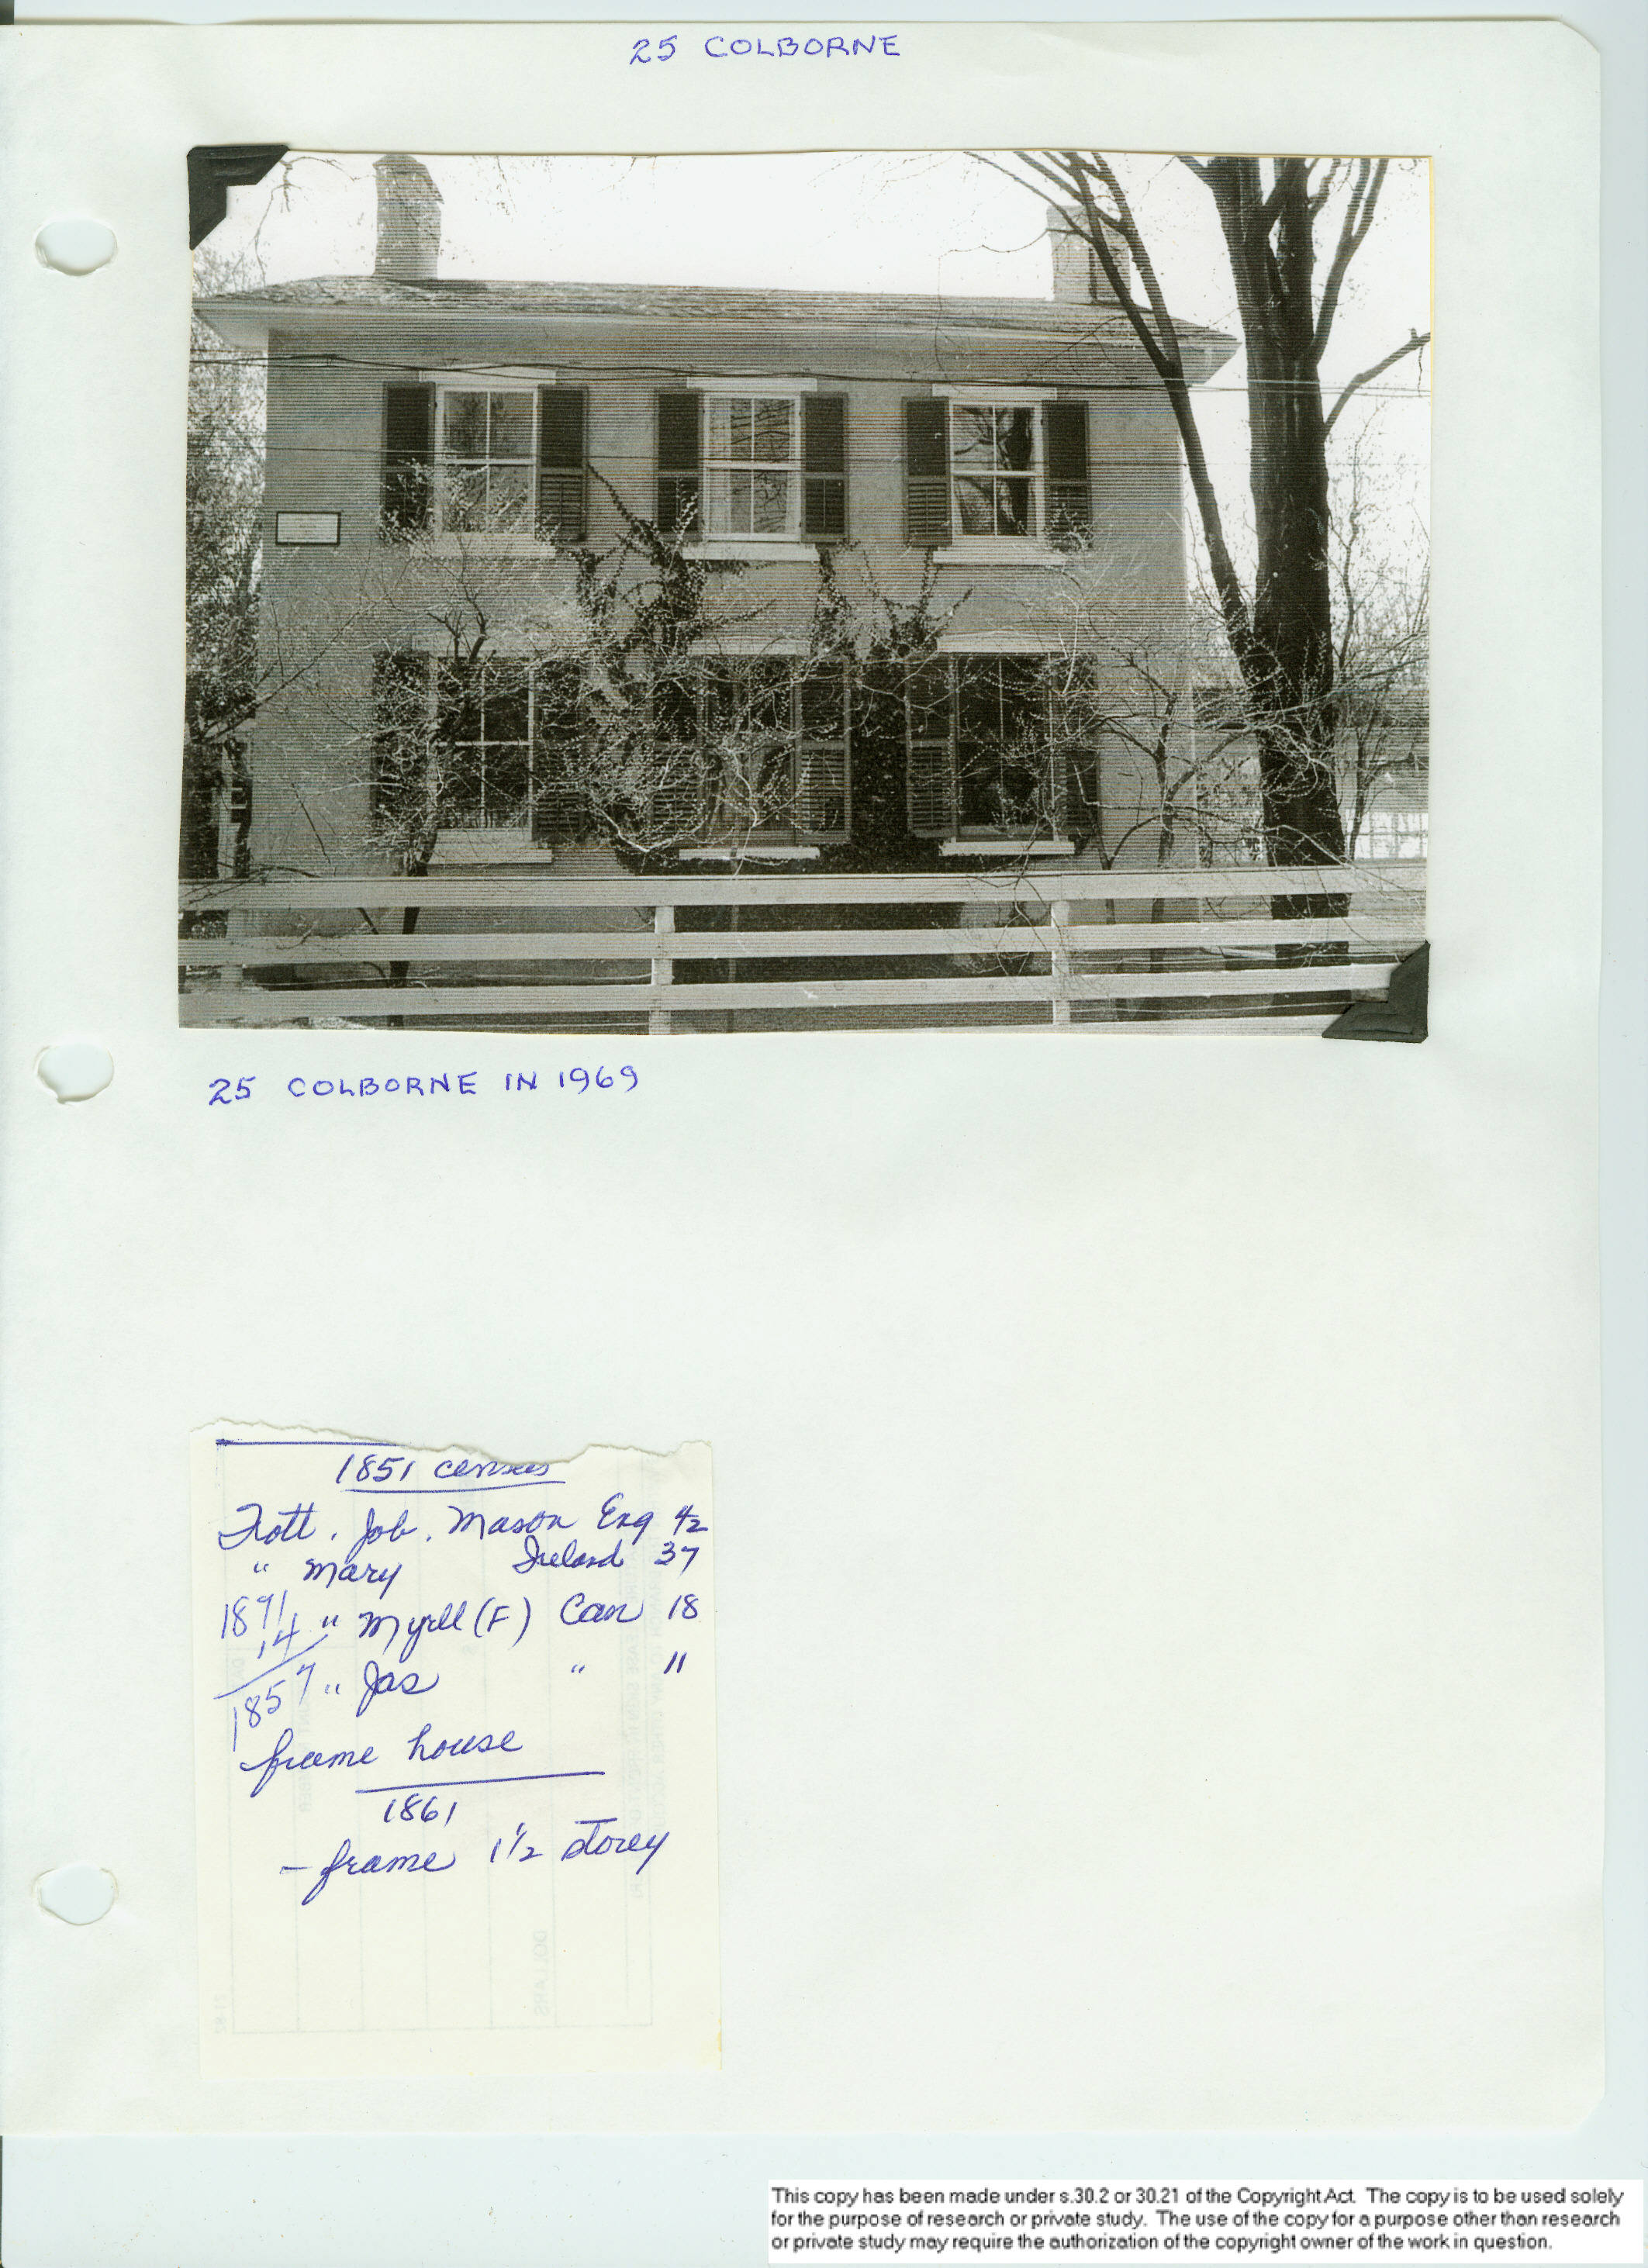 25 COLBORNE
25 COLBORNE IN 1969
1851 census
Trott, Job, Mason Eng 42
" Mary Ireland 37
1871
14 " Myrll (F) Can 18
1857 " Jas " 11
frame house
1861
- frame 1 1/2 storey
DOLLARS
This copy has been made under s.30.2 or 30.21 of the Copyright Act. The copy is to be used solely
for the purpose of research or private study. The use of the copy for a purpose other than research
or private study may require the authorization of the copyright owner of the work in question.